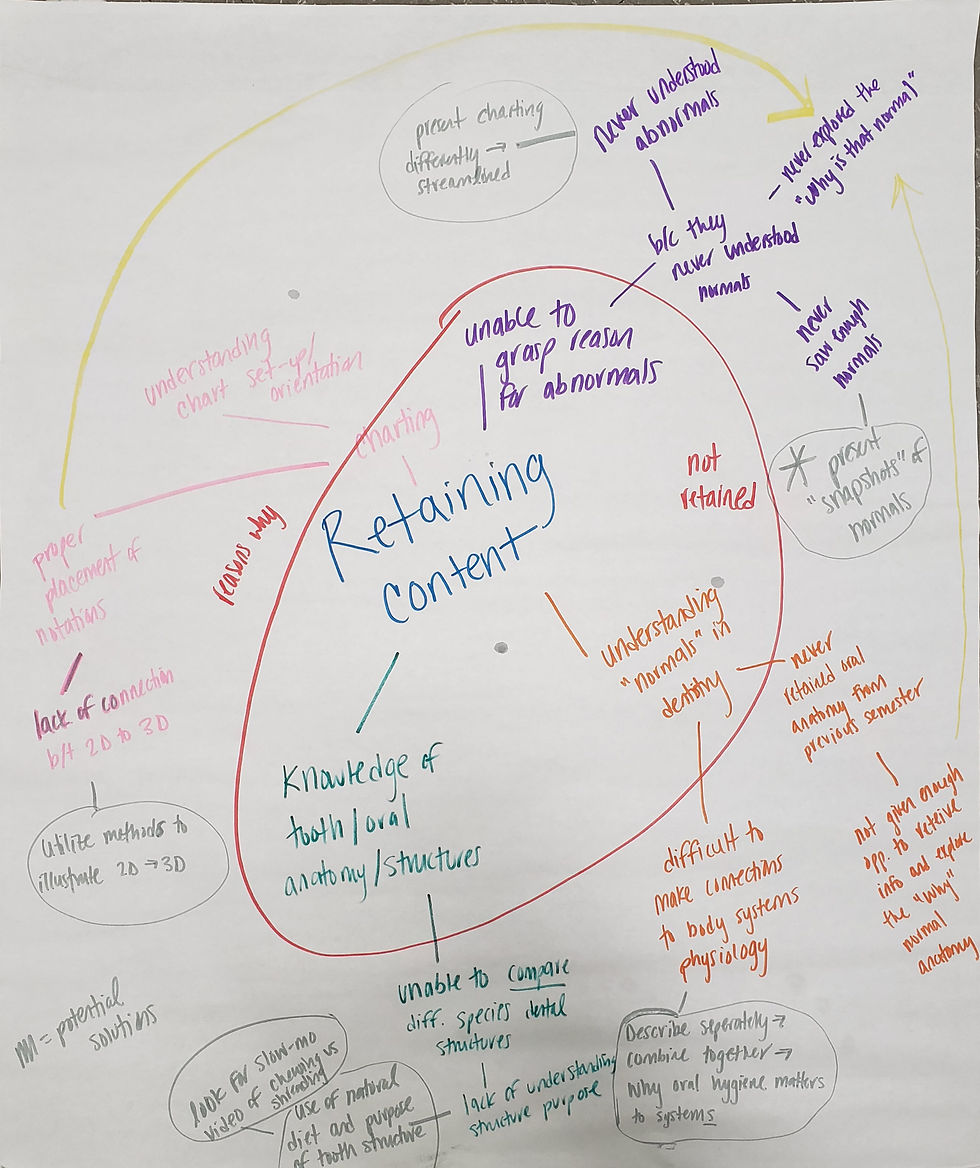 present charting
differently →
streamlined
never understood
abnormals
- never explored the
"why is that normal"
b/c they
never understood
normals
never
saw enough
normals
* present
"snapshots" of
normals
unable to
grasp reason
for abnormals
understanding
chart set-up/
orientation
charting
not
retained
reasons why
Retaining
content
proper
placement of
notations
lack of connection
b/t 2D to 3D
Utilize methods to
illustrate 2D → 3D
understanding
"normals" in
dentistry
never
retained oral
anatomy from
previous semester
not given enough
opp. to reteive
info and explore
the "why"
normal
anatomy
difficult to
make connections
to body systems
physiology
Describe seperately →
combine together →
why oral hygiene matters
to systems
Knowledge of
tooth/oral
anatomy/structures
unable to compare
diff. species dental
structures
lack of understanding
structure purpose
use of natural
diet and purpose
of tooth structure
look for slow-mo
video of chewing vs
shredding
= potential
solutions